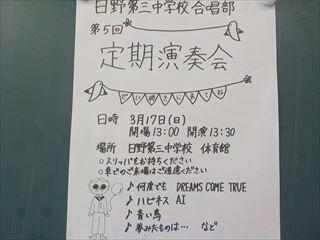 日野第三中学校合唱部
第5回
定期演奏会
ぜひ聴きに来てね
日時 3月17日(日)
開場13:00 開演13:30
場所 日野第三中学校 体育館
○スリッパをお持ちください
○車でのご来場はご遠慮ください
♪何度でも DREAMS COME TRUE
♪ハピネス AI
♪青い鳥
♪夢みたものは… など